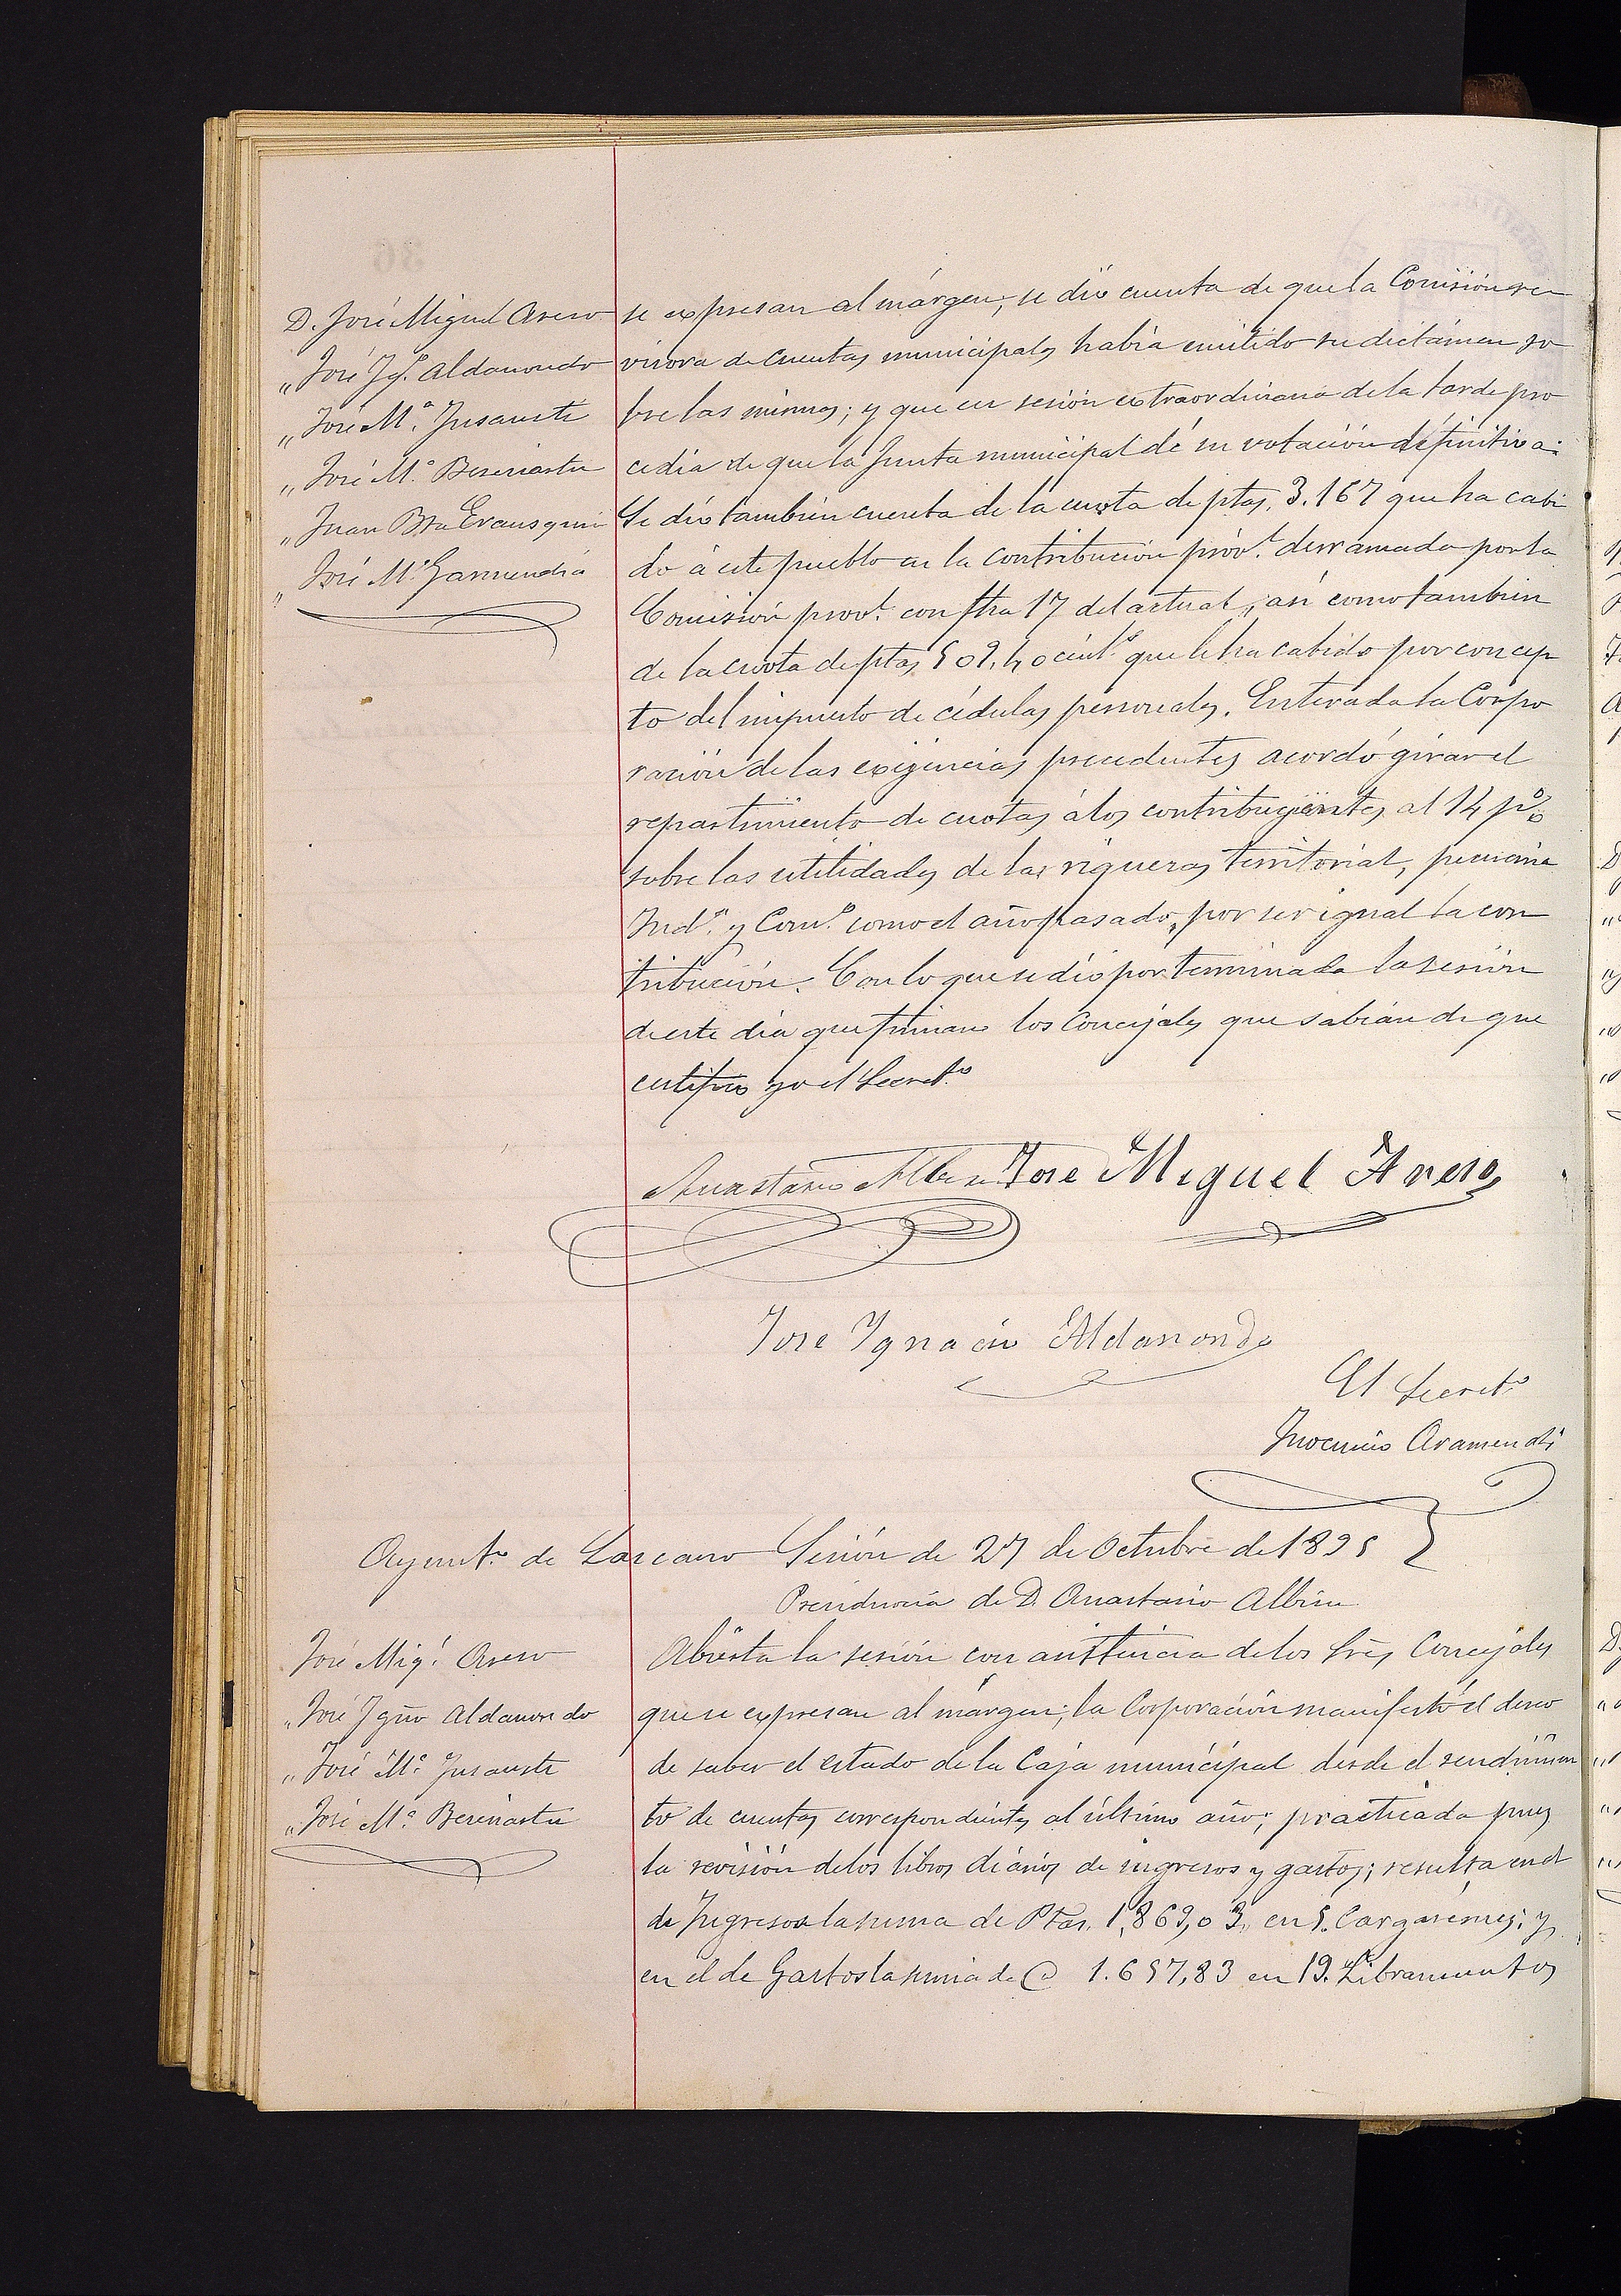 D. José Miguel Areso
„ José Ig.º Aldanondo
„ José M.ª Insausti
„ José M.ª Beseriartu
„ Juan Bta Erausquin
„ José M.ª Garmendia
se expresan al márgen, se dió cuenta de que la Comisión re
visora de cuentas municipales había emitido su dictámen so
bre las mismas; y que en sesión extraordinaria de la tarde pro
cedía de que la Junta municipal dé su votación definitiva:
Se dió también cuenta de la cuota de ptas. 3.167 que ha cabi
do á este pueblo en la contribución prov.l derramada por la
Comisión prov.l con fha 17 del actual, así como tambien
de la cuota de ptas 509,40 cént.s que le ha cabido por concep
to del impuesto de cédulas personales. Enterada la Corpo
ración de las exigencias precedentes acordó girar el
repartimiento de cuotas á los contribuyentes al 14 p%
sobre las utilidades de las riquezas territorial, pecuaria
Ind.l y Com.l como el año pasado, por ser igual la con
tribución. Con lo que se dió por terminada la sesión
de este día que firman los Concejales que sabían de que
certifico yo el Secret.º
Anastasio Albisu José Miguel Areso
Jose Ygnacio Aldanondo
El Secret.º
Inocencio Aramendi
Ayunt.º de Lazcano Sesión de 27 de Octubre de 1895
Presidencia de D. Anastasio Albisu
José Mig.l Areso
„ José Ignº Aldanondo
„ José M.ª Insausti
„ José M.ª Beseriartu
Abierta la sesión con asistencia de los Sres Concejales
que se expresan al márgen; la Corporación manifestó el deseo
de saber el estado de la Caja municipal desde el rendimien
to de cuentas correspondientes al último año; practicada pues
la revisión de los libros diarios de ingresos y gastos; resulta en el
de Ingresos la suma de Ptas. 1,869,03, en 5. Cargarémes; y
en el de Gastos la suma de @ 1.657,83 en 19. Libramientos